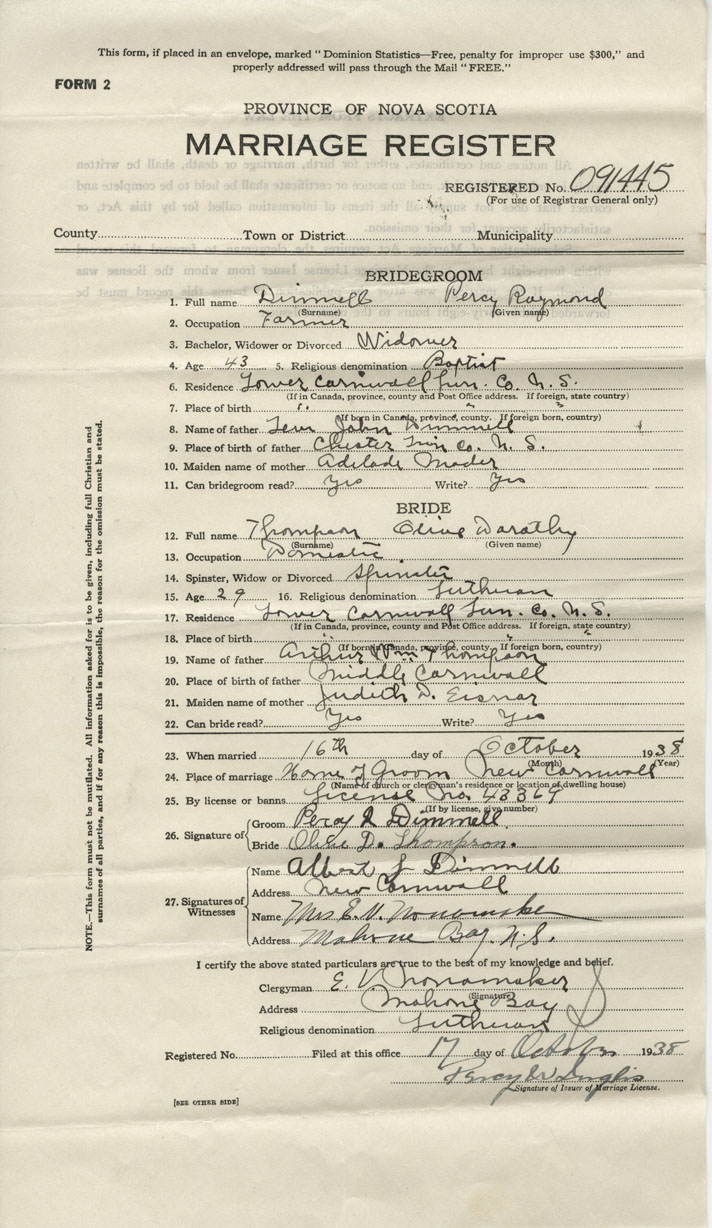 This form, if placed in an envelope, marked "Dominion Statistics—Free, penalty for improper use $300," and
properly addressed will pass through the Mail "FREE."
FORM 2
PROVINCE OF NOVA SCOTIA
MARRIAGE REGISTER
REGISTERED No. 091445
(For use of Registrar General only)
County Town or District Municipality
BRIDEGROOM
1. Full name Dimmell Percy Raymond
(Surname) (Given name)
2. Occupation Farmer
3. Bachelor, Widower or Divorced Widower
4. Age 43 5. Religious denomination Baptist
6. Residence Lower Cornwall Lun. Co. N. S.
(If in Canada, province, county and Post Office address. If foreign, state country)
7. Place of birth " " "
(If born in Canada, province, county. If foreign born, country)
8. Name of father Levi John Dimmell
9. Place of birth of father Chester Lun Co. N. S.
10. Maiden name of mother Adelade Mader
11. Can bridegroom read? Yes Write? Yes
BRIDE
12. Full name Thompson Olive Darathy
(Surname) (Given name)
13. Occupation Domestic
14. Spinster, Widow or Divorced Spinster
15. Age 29 16. Religious denomination Lutheran
17. Residence Lower Cornwall Lun. Co. N. S.
(If in Canada, province, county and Post Office address. If foreign, state country)
18. Place of birth " " "
(If born in Canada, province, county. If foreign born, country)
19. Name of father Arthur Wm Thompson
20. Place of birth of father Middle Cornwall
21. Maiden name of mother Judith D. Eisnor
22. Can bride read? Yes Write? Yes
23. When married 16th day of October 1938
(Month) (Year)
24. Place of marriage Home of Groom New Cornwall
(Name of church or clergyman's residence or location of dwelling house)
25. By license or banns License no. 43369
(If by license, give number)
26. Signature of Groom Percy R Dimmell
Bride Olive D. Thompson.
27. Signatures of Witnesses Name Albert J Dimmell
Address New Cornwall
Name Mrs E. V. Nonamaker
Address Mahone Bay, N. S.
I certify the above stated particulars are true to the best of my knowledge and belief.
Clergyman E. V. Nonamaker
(Signature)
Address Mahone Bay
Religious denomination Lutheran
Registered No. Filed at this office 17 day of October 1938
Percy W Inglis
Signature of Issuer of Marriage License.
[SEE OTHER SIDE]
NOTE.—This form must not be mutilated. All information asked for is to be given, including full Christian and
surnames of all parties, and if for any reason this is impossible, the reason for the omission must be stated.